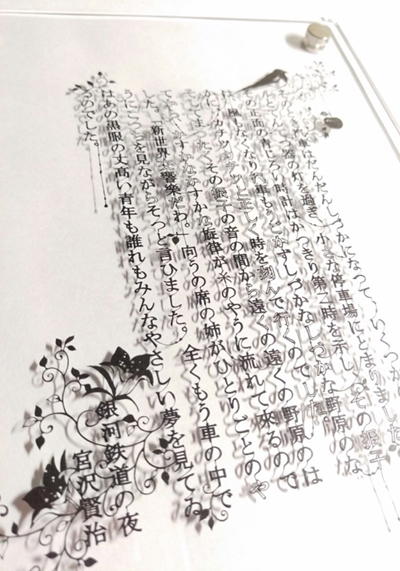 車はだんだんしづかになって、いくつか
の灯を過ぎ、小さな停車場にとまりました。
その正面の青じろい時計はかっきり第二時を示し、その振子
なくなり汽車もうごかずしづかなしづかな野原のな
カチッカチッと正しく時を刻んで行くのでした。
そしてまったくその振子の音の間から遠くの遠くの野原のは
てから、かすかなかすかな旋律が糸のやうに流れて来るので
した。「新世界交響楽だわ。」向うの席の姉がひとりごとのや
うにこっちを見ながらそっと言ひました。全くもう車の中で
はあの黒服の丈高い青年も誰れもみんなやさしい夢を見てゐ
るのでした。
銀河鉄道の夜
宮沢賢治